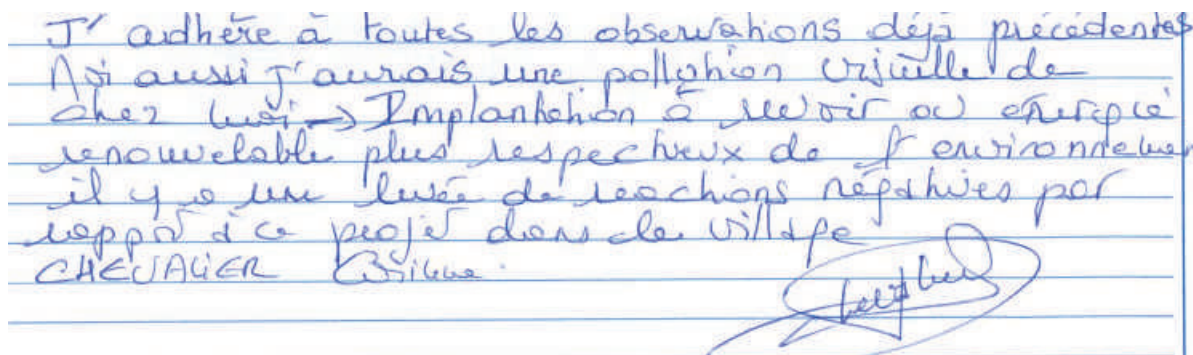 J' adhère à toutes les observations déjà précédentes
Moi aussi j'aurais une pollution visuelle de
chez moi → Implantation à revoir ou énergie
renouvelable plus respectueux de l' environnemen
il y a une levée de réactions négatives par
rappor à ce projet dans le village
CHEVALIER